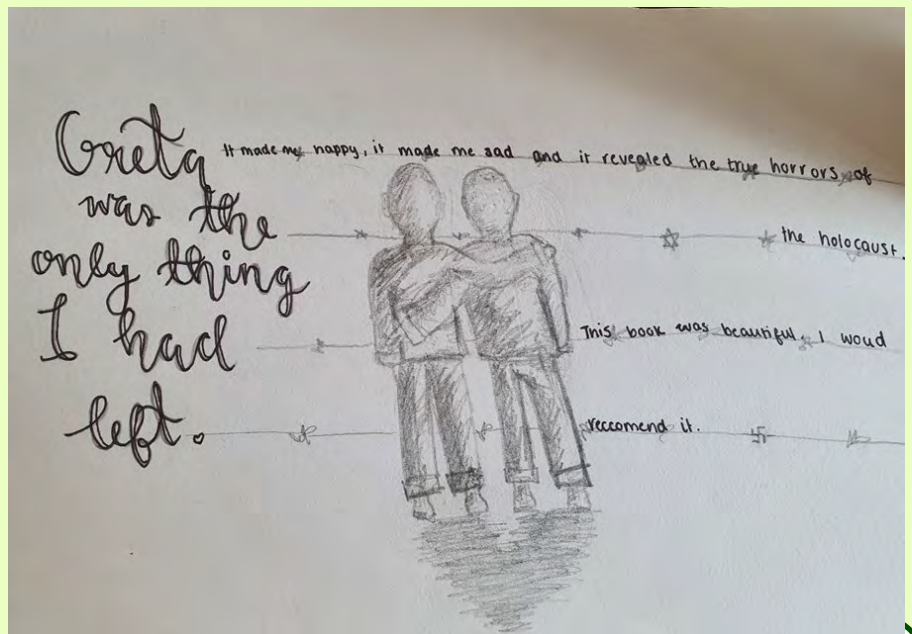 Greta
was the
only thing
I had
left.
It made me happy, it made me sad and it revealed the true horrors of
the holocaust.
This book was beautiful. I woud
reccomend it.